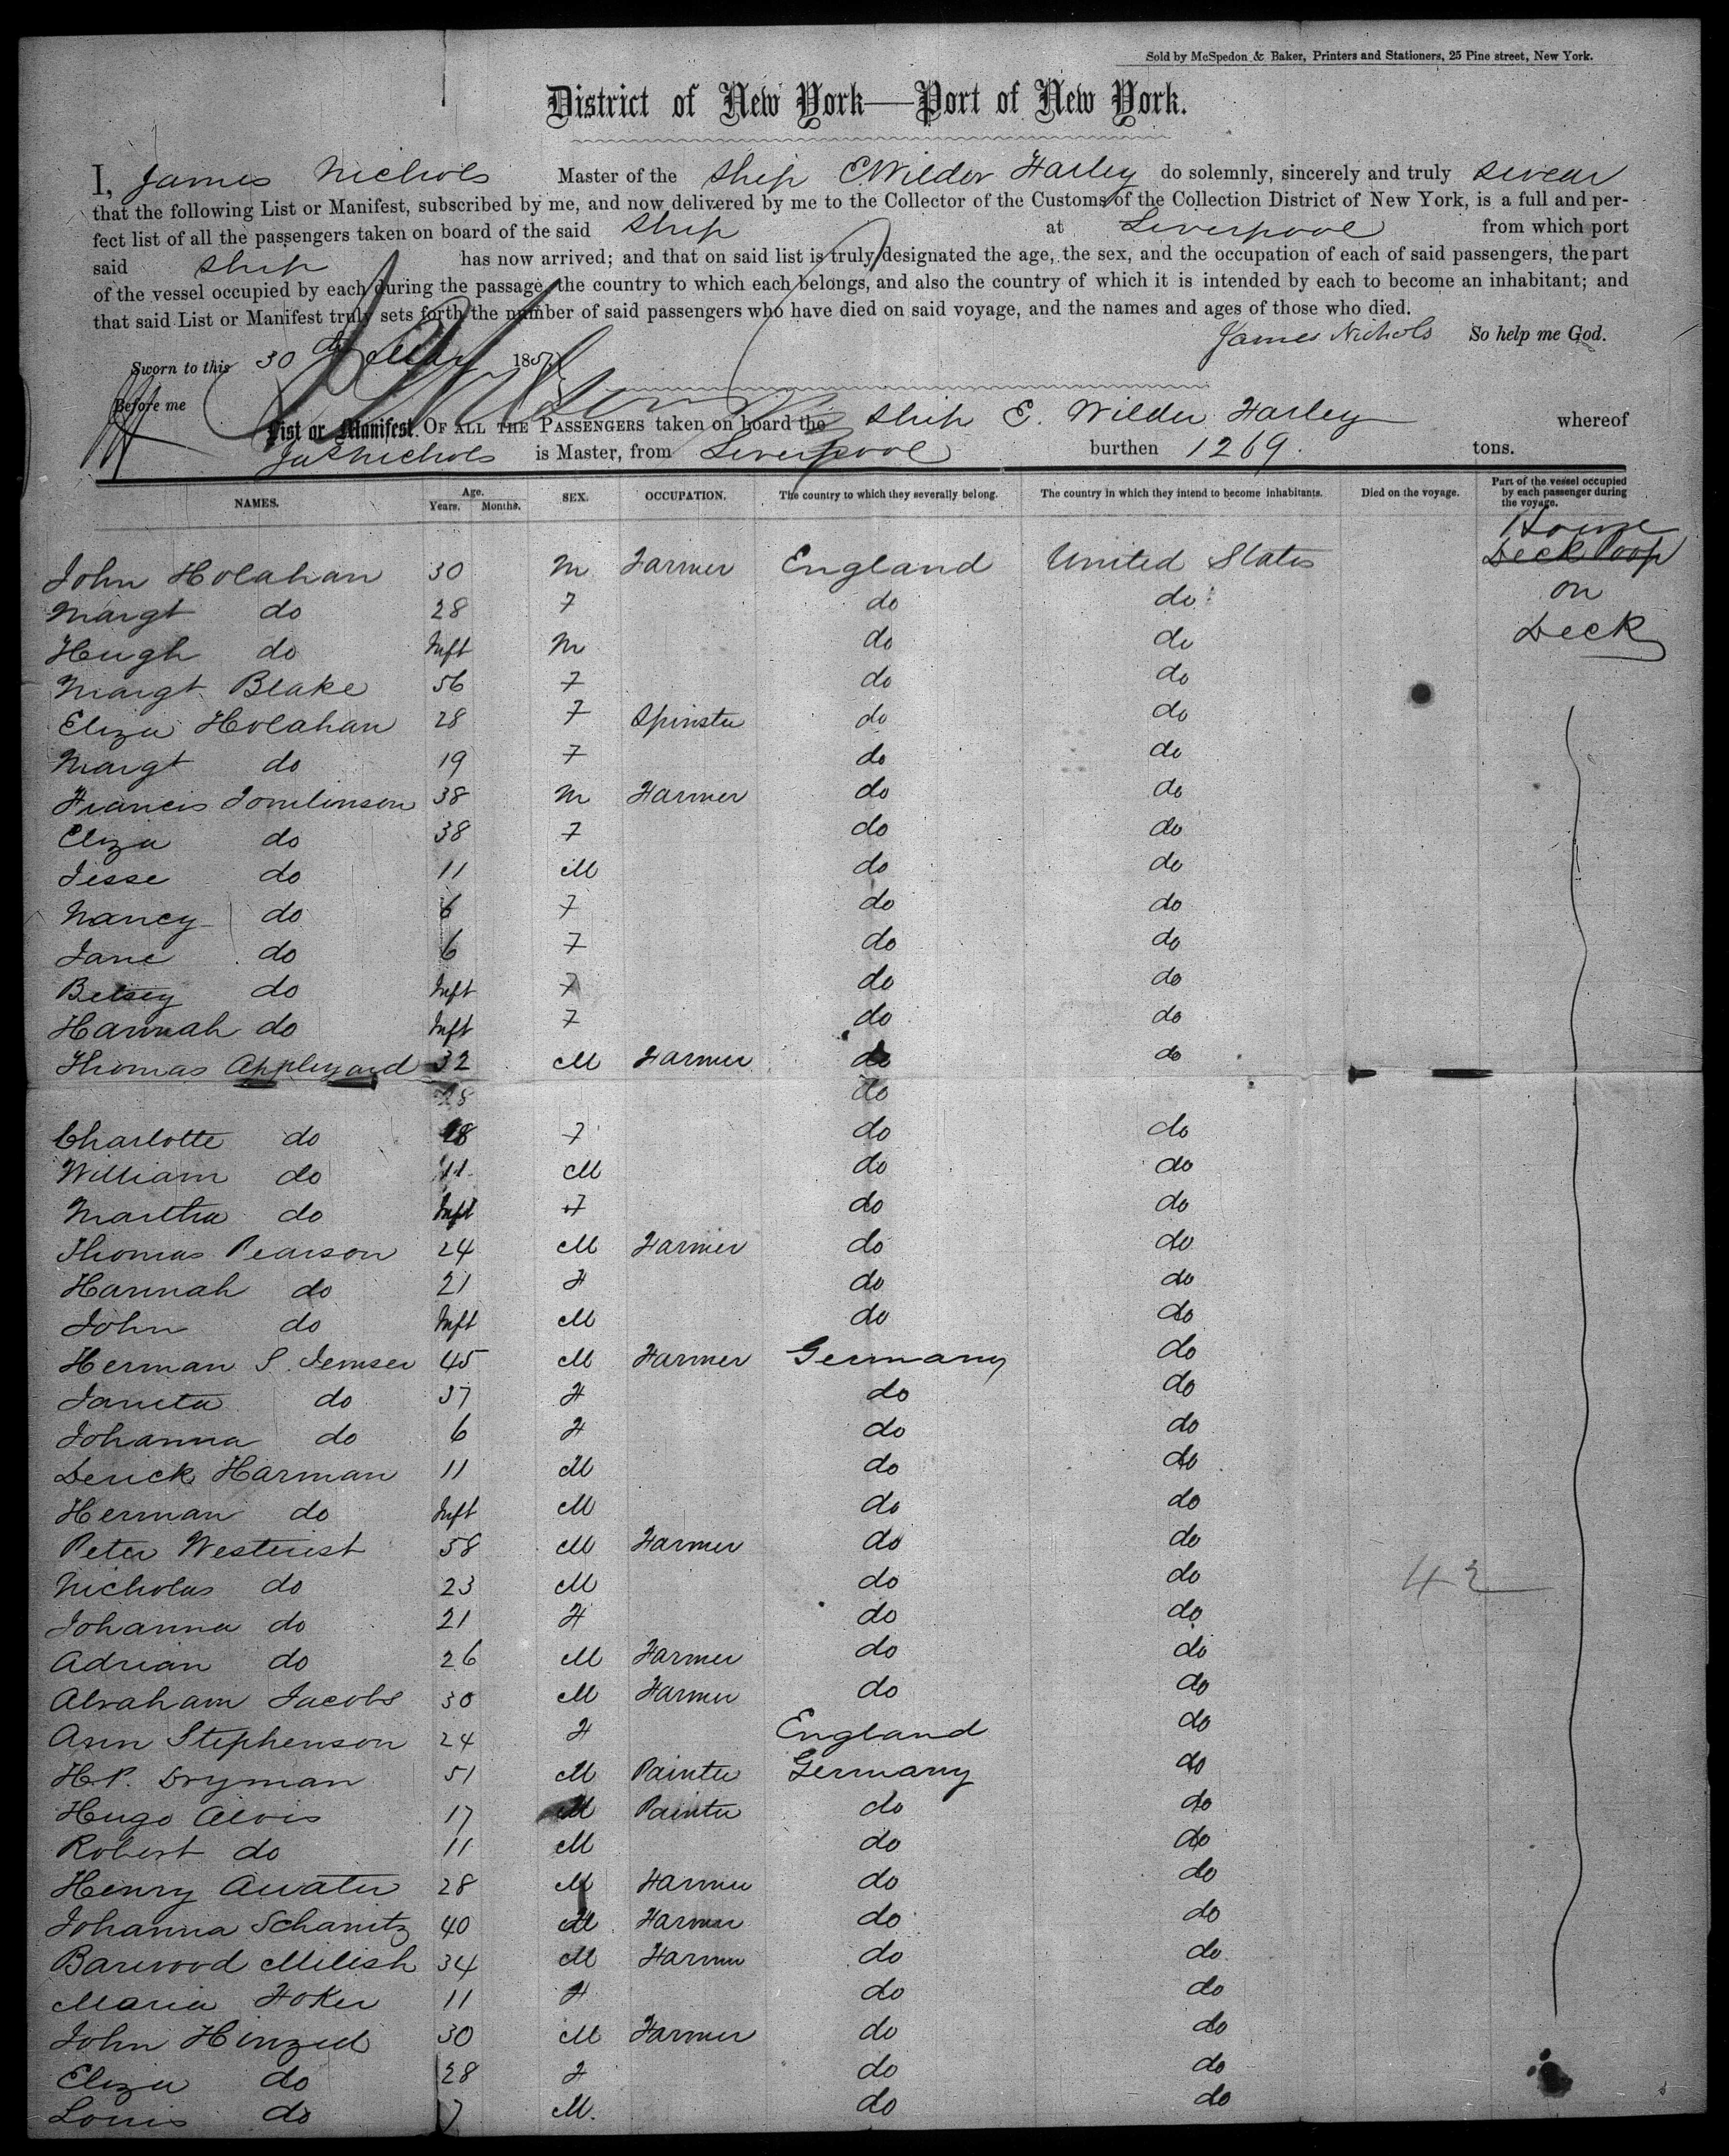 Sold by McSpedon & Baker, Printers and Stationers, 25 Pine street, New York.
District of New York—Port of New York.
I, James Nichols Master of the Ship E. Wilder Farley do solemnly, sincerely and truly swear
that the following List or Manifest, subscribed by me, and now delivered by me to the Collector of the Customs of the Collection District of New York, is a full and per-
fect list of all the passengers taken on board of the said Ship at Liverpool from which port
said Ship has now arrived; and that on said list is truly designated the age, the sex, and the occupation of each of said passengers, the part
of the vessel occupied by each during the passage, the country to which each belongs, and also the country of which it is intended by each to become an inhabitant; and
that said List or Manifest truly sets forth the number of said passengers who have died on said voyage, and the names and ages of those who died.
James Nichols So help me God.
Sworn to this 30 th May 1857
Before me
List or Manifest OF ALL THE PASSENGERS taken on board the Ship E. Wilder Farley whereof
Jas Nichols is Master, from Liverpool burthen 1269. tons.
NAMES. Age. Years. Months. SEX. OCCUPATION. The country to which they severally belong. The country in which they intend to become inhabitants. Died on the voyage. Part of the vessel occupied by each passenger during the voyage.
House
John Holahan 30 M Farmer England United States Deck Poop
Margt do 28 F do do on
Hugh do Inft M do do Deck
Margt Blake 56 F do do
Eliza Holahan 28 F Spinster do do
Margt do 19 F do do
Francis Tomlinson 38 M Farmer do do
Eliza do 38 F do do
Jesse do 11 M do do
Nancy do 6 F do do
Jane do 6 F do do
Betsey do Inft F do do
Hannah do Inft F do do
Thomas Appleyard 32 M Farmer do do
28 do
Charlotte do 28 F do do
William do 11 M do do
Martha do Inft F do do
Thomas Pearson 24 M Farmer do do
Hannah do 21 F do do
John do Inft M do do
Herman S. 45 M Farmer Germany do
do 37 F do do
Johanna do 6 F do do
Derick Harman 11 M do do
Herman do Inft M do do
Peter 58 M Farmer do do
Nicholas do 23 M do do 42
Johanna do 21 F do do
Adrian do 26 M Farmer do do
Abraham Jacobs 30 M Farmer do do
Ann Stephenson 24 F England do
H.P. Dryman 51 M Painter Germany do
Hugo Alvis 17 M Painter do do
Robert do 11 M do do
Henry 28 M Farmer do do
Johanna Schanitz 40 M Farmer do do
Barwood Milish 34 M Farmer do do
Maria Foker 11 F do do
John 30 M Farmer do do
Eliza do 28 F do do
Louis do 7 M. do do